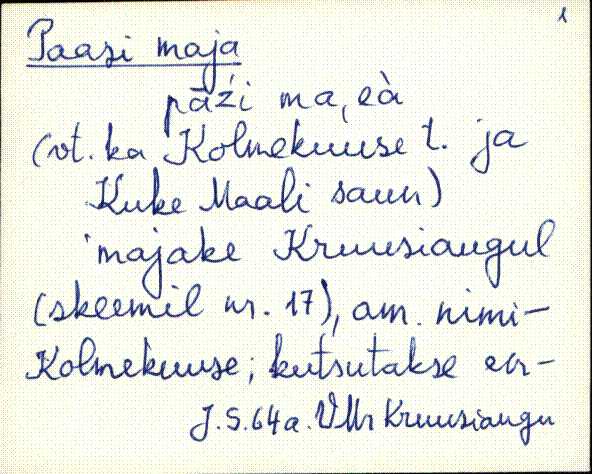 1
Paasi maja
pāźi ma,eà
(vt. ka Kolmekuuse t. ja
Kuke Maali saun)
majake Kruusiaugul
(skeemil nr. 17), am. nimi-
Kolmekuuse; kutsutakse er-
J. S. 64a. VMr Kruusiaugu